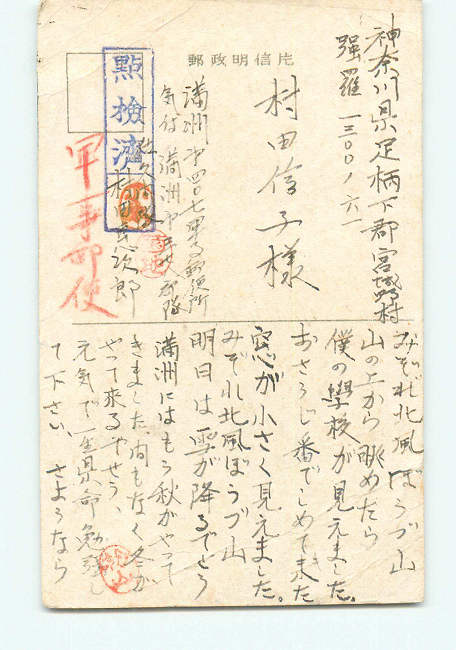 郵政明信片
點檢濟
軍事郵便
神奈川県足柄下郡宮城野村
强羅一三〇〇ノ六一
村田信子様
満洲
気付満洲
村田
次郎
みぞれ北風ぼうづ山
山の上から眺めたら
僕の學校が見えました。
おそうじ番でしめて来た
窓が小さく見えました。
みぞれ北風ぼうづ山
明日は雪が降るでせう
満洲にはもう秋がやって
きました、間もなく冬が
やって来るでせう、
元気で一生県命勉強し
て下さい、さようなら